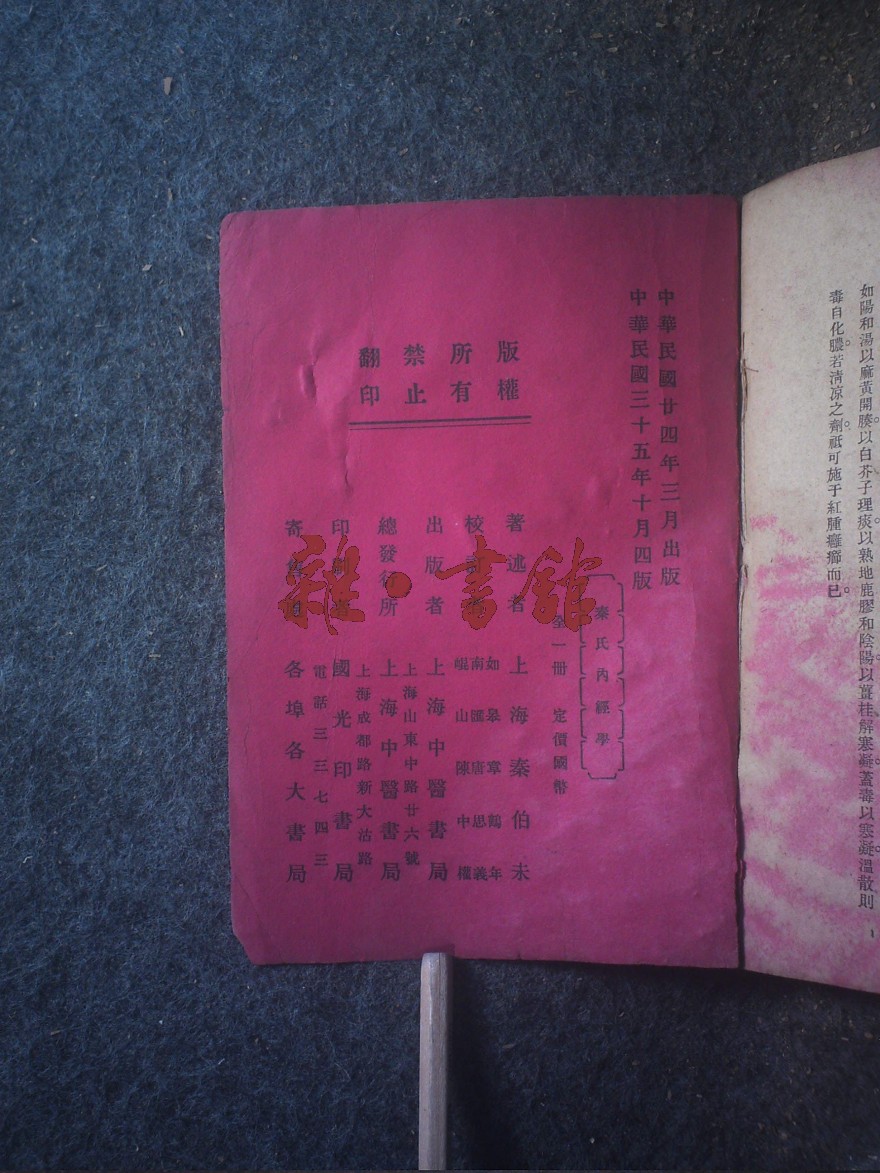 如陽和湯以麻黃開腠。以白芥子理痰。以熟地鹿膠和陰陽。以薑桂解寒凝。蓋毒以寒凝。溫散則
毒自化膿。若清凉之劑祇可施于紅腫癰癤而已。
中華民國廿四年三月出版
中華民國三十五年十月四版
秦氏內經學
全一冊 定價國幣
版權
所有
禁止
翻印
著述者 上海秦伯未
校 者 如皋寧鶴年
南匯唐思義
崐山陳中權
出版者 上海中醫書局
總發行所 上海中醫書局
上海山東中路廿六號
印 國光印書局
上海成都路新大沽路
電話三三七四三
寄 各埠各大書局
雜·書館